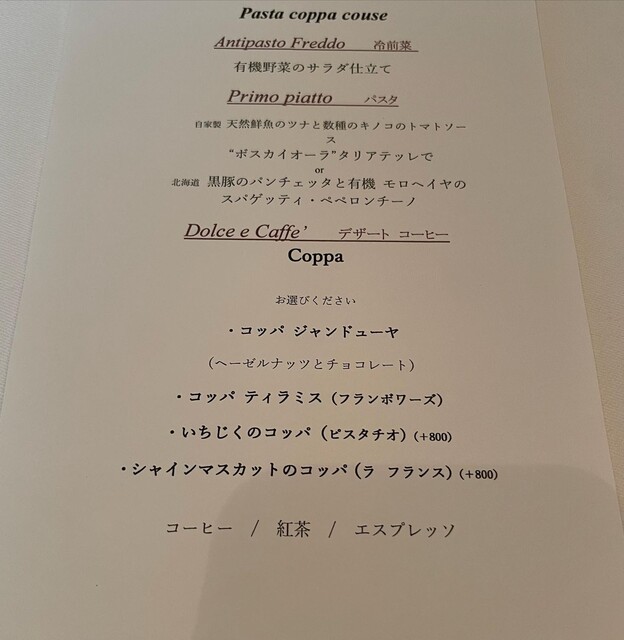 Pasta coppa couse
Antipasto Freddo 冷前菜
有機野菜のサラダ仕立て
Primo piatto パスタ
自家製 天然鮮魚のツナと数種のキノコのトマトソー
ス
“ボスカイオーラ”タリアテッレで
or
北海道 黒豚のパンチェッタと有機 モロヘイヤの
スパゲッティ・ペペロンチーノ
Dolce e Caffe’ デザート コーヒー
Coppa
お選びください
・コッパ ジャンドゥーヤ
（ヘーゼルナッツとチョコレート）
・コッパ ティラミス（フランボワーズ）
・いちじくのコッパ（ピスタチオ）（+800）
・シャインマスカットのコッパ（ラ フランス）（+800）
コーヒー / 紅茶 / エスプレッソ